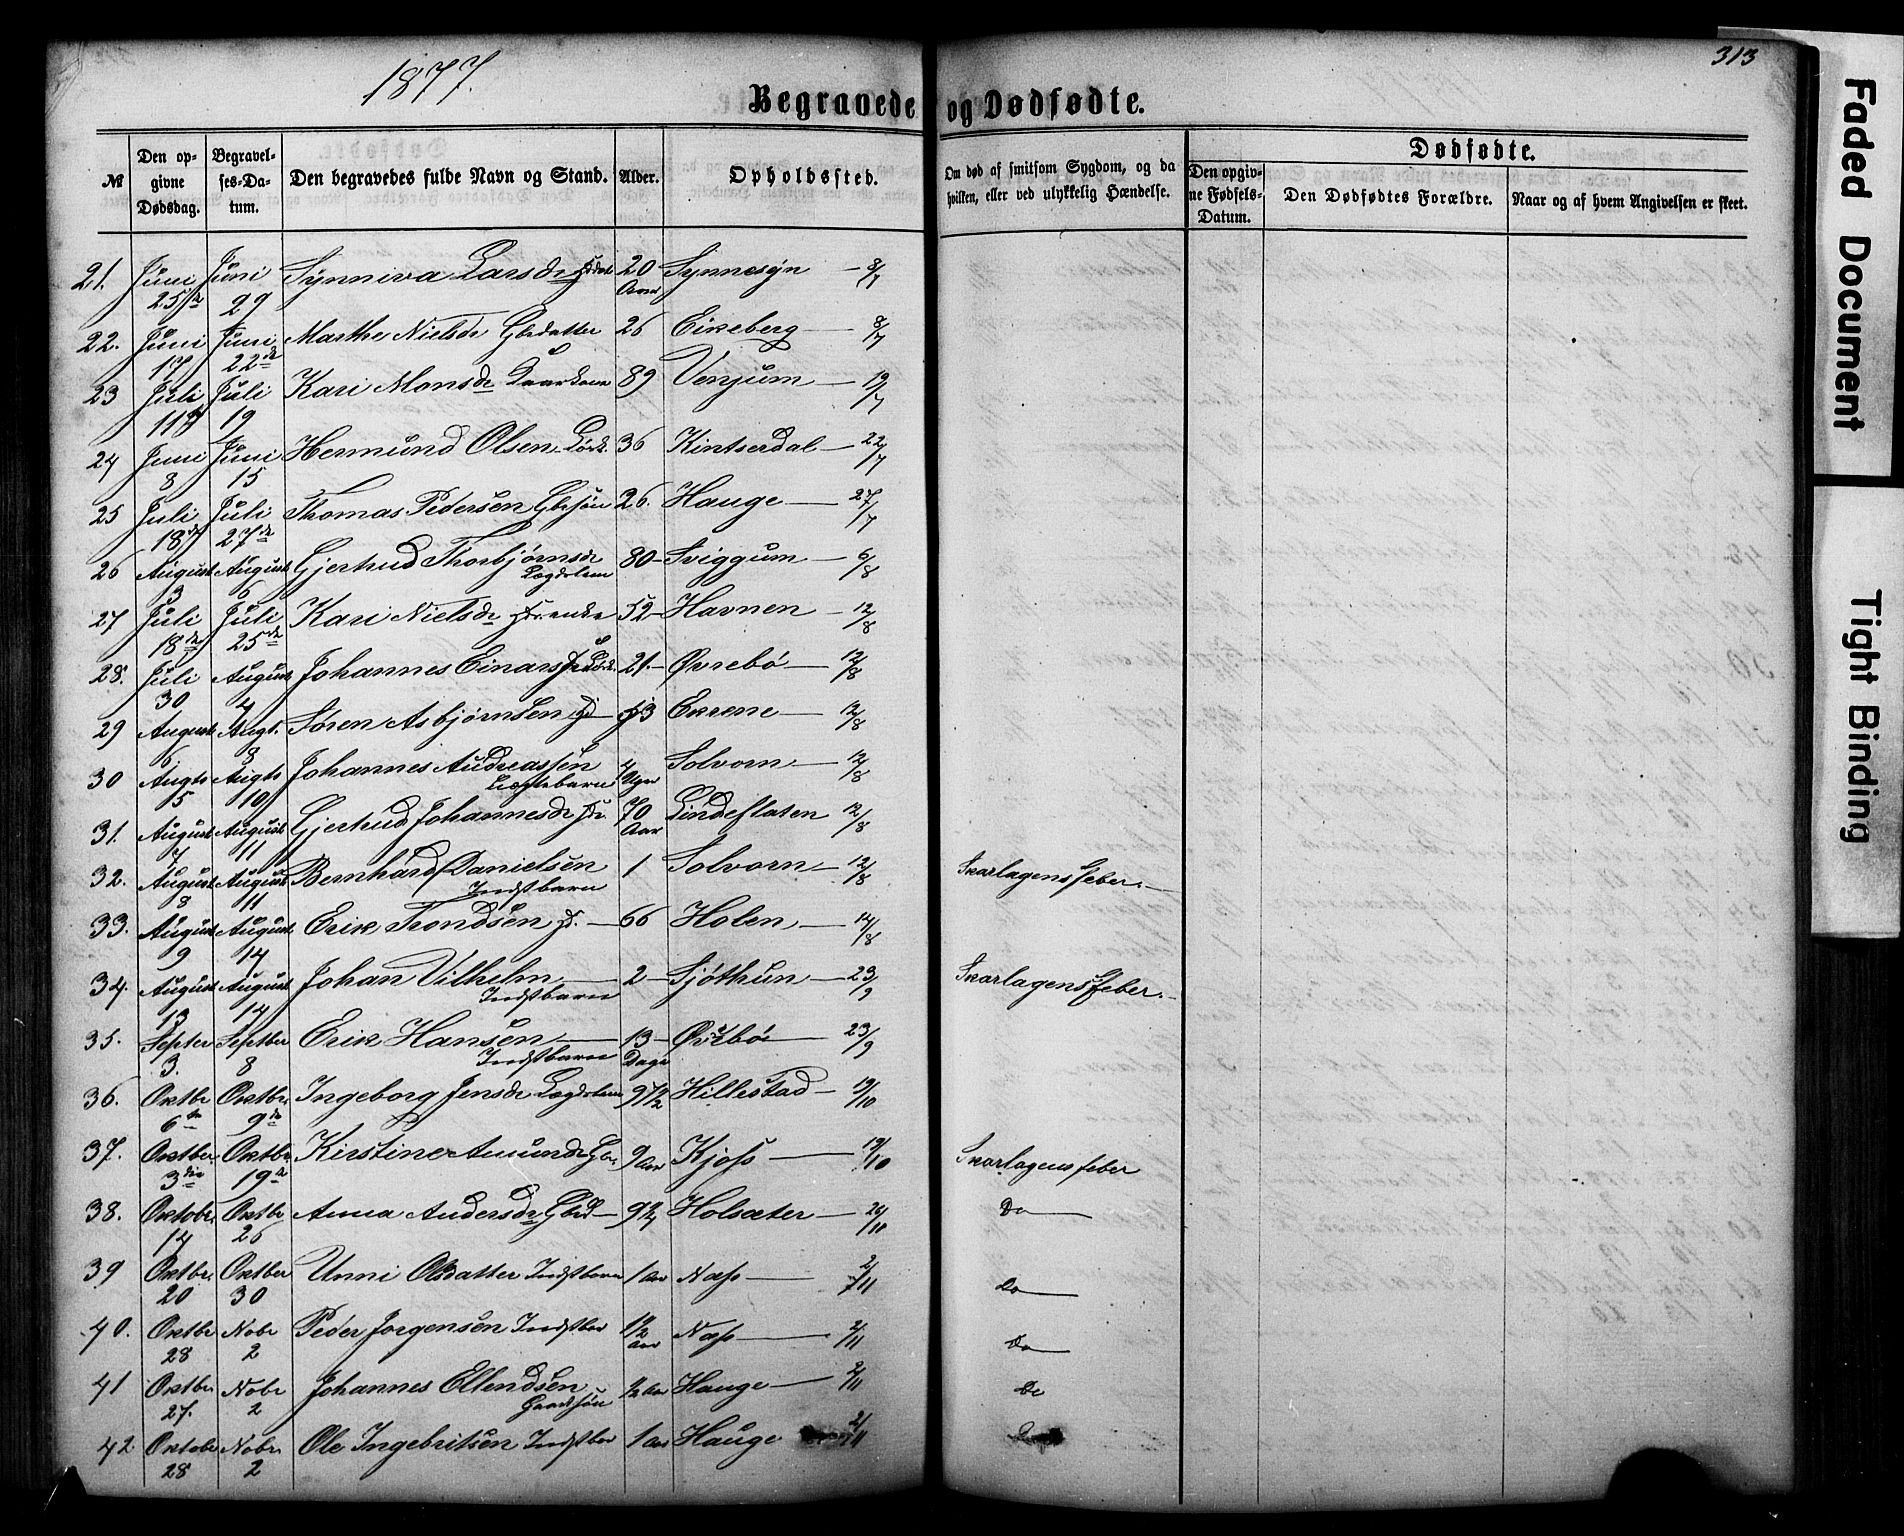 1877.
313
Begravede og Dødfødte.
№
Den opgivne Dødsdag.
Begravelses-Datum.
Den begravedes fulde Navn og Stand.
Alder.
Opholdssted.
Om død af smitsom Sygdom, og da hvilken, eller ved ulykkelig Hændelse.
Dødfødte.
Den opgivne Fødsels-Datum.
Den Dødfødtes Forældre.
Naar og af hvem Angivelsen er skeet.
21. Juni 25 Juni 29 Synniva Larsdr 20 Aar Synnesyn – 8/7
22. Juni 17 Juni 22de Marthe Nielsdr Gbrdatter 26 Eikeberg – 8/7
23 Juli 11 Juli 19 Kari Monsdr Kaarkone 89 Venjum – 19/7
24 Juni 8 Juni 15 Hermund Olsen 36 Kintserdal – 22/7
25 Juli 18de Juli 27de Thomas Pedersen Gbrsøn 26. Hauge – 27/7
26 August 3 August 6 Gjertrud Thorbjørnsdr Lægdslem 80 – Sviggum – 6/8
27 Juli 18de Juli 25de Kari Nielsdr enke 52 – Havnen – 12/8
28. Juli 30 August 4 Johannes Einarsen 21. – Øvrebø – 12/8
29 August 6 Augt. 8 Søren Asbjørnsen 53 Ekrene – 12/8
30 Augts 5 Augts 10 Johannes Andreassen Lægtebarn 4 Uger Solvorn – 12/8
31. August 7 August 11 Gjertrud Johannesdr 70 Aar Lindeflaten 12/8
32. August 8 August 11 Bernhard Danielsen Indstbarn 1 Solvorn – 12/8 Skarlagensfeber. –
33. August 9 August 14 Erik Trondsen – 66 Holen – 14/8
34. August 13 August 14 Johan Vilhelm – Indstbarn 2 – Sjøthun – 23/9 Skarlagensfeber. –
35. Septer 3. Septber 8 Erik Hansen – Indstbarn 13 – Dage Øvrebø – 23/9
36. Oktbr 6te Oktbr. 9de Ingeborg Jensdr Lægdslem 97 1/2 Hillestad – 19/10
37. Oktber 3die Oktbr. 19de Kirstine Amundsdr 9 Aar Kjoss – 19/10 Skarlagensfeber
38. Oktobr 14 Oktbr 26 Anna Andersdr – 9 2/4 Holsæter – 26/11 Do –
39 Oktbr. 20 Oktber 30 Unni Olsdatter Indstbarn 1 Aar Næss – 2/11 Do –
40. Oktbr 28 Nobr 2 Peder Jørgensen Indstbar 1 1/2 Aar Næss – 2/11 Do –
41 Oktbr. 27. Nobr 2 Johannes Ellendsen Gaardsøn 1/2 Aar Hauge – 2/11 Do
42 Oktobr 28 Nobr. 2 Ole Ingebritsen Indstbar 1 Aar Hauge 2/11
Faded Document
Tight Binding